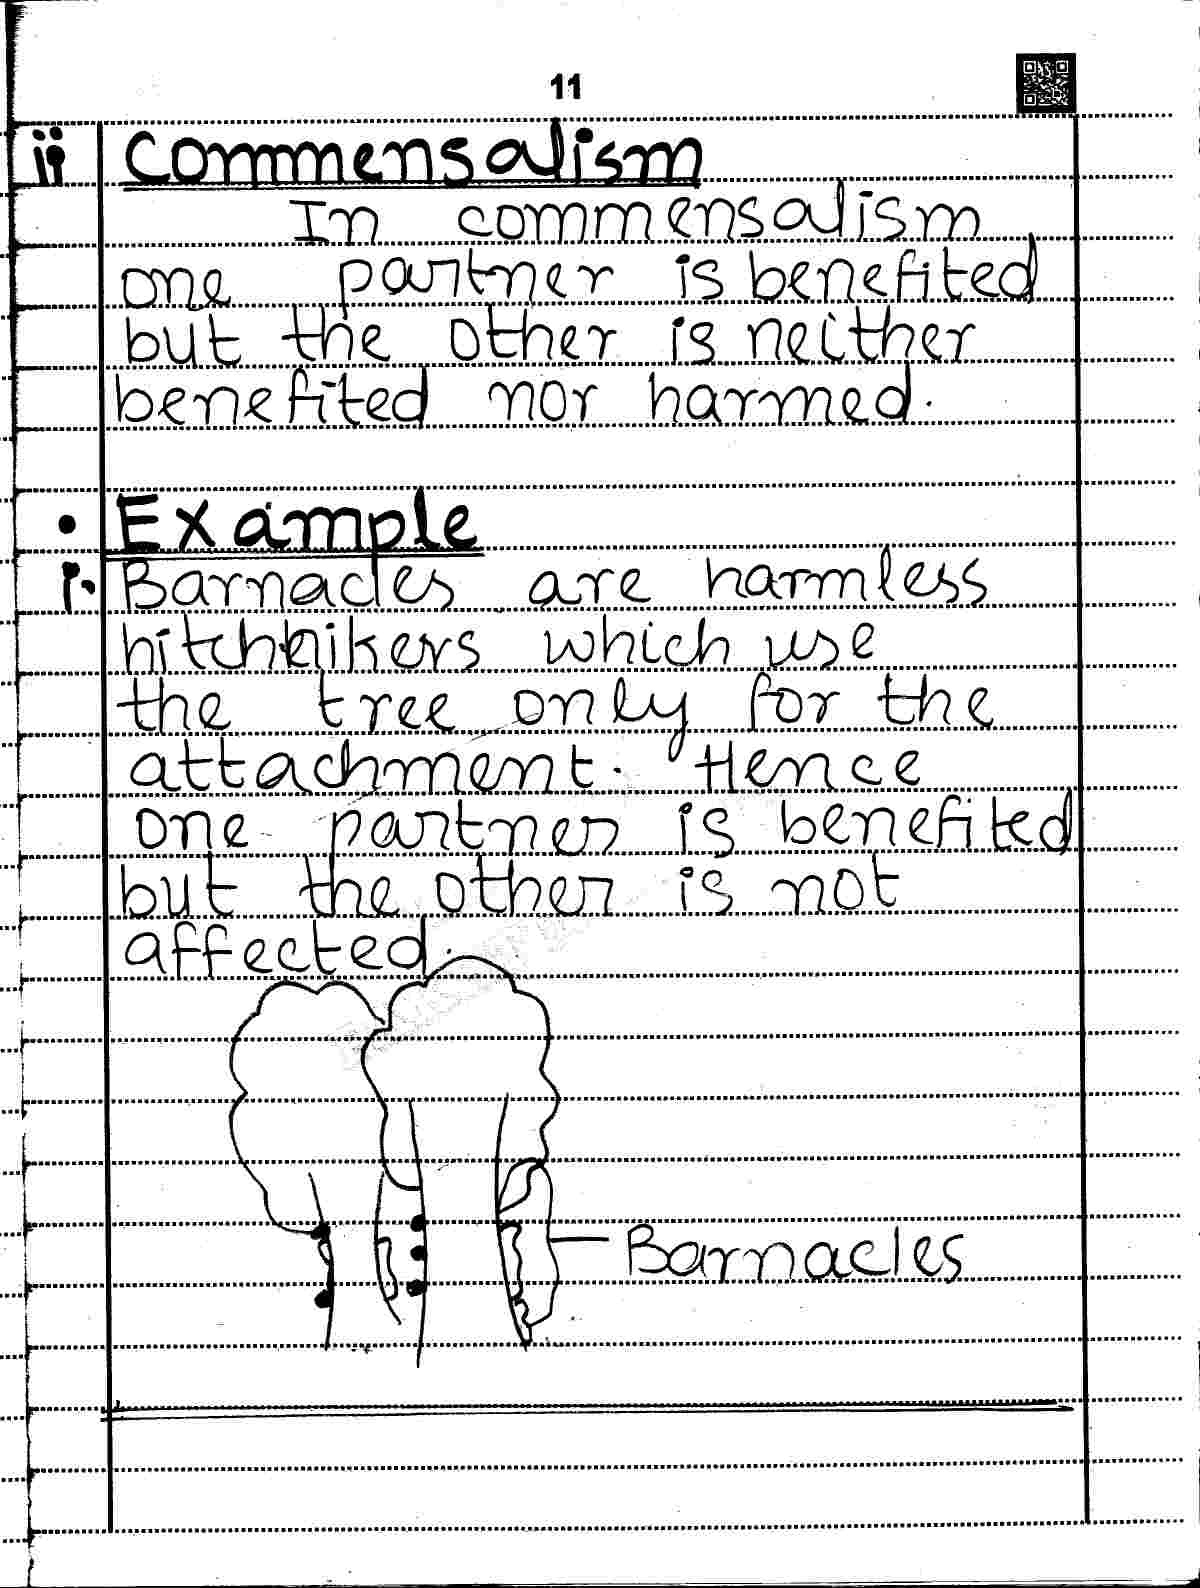 11
ii Commensalism
In commensalism
one partner is benefited
but the other is neither
benefited nor harmed.
• Example
i. Barnacles are harmless
hitchhikers which use
the tree only for the
attachment. Hence
one partner is benefited
but the other is not
affected.
Barnacles